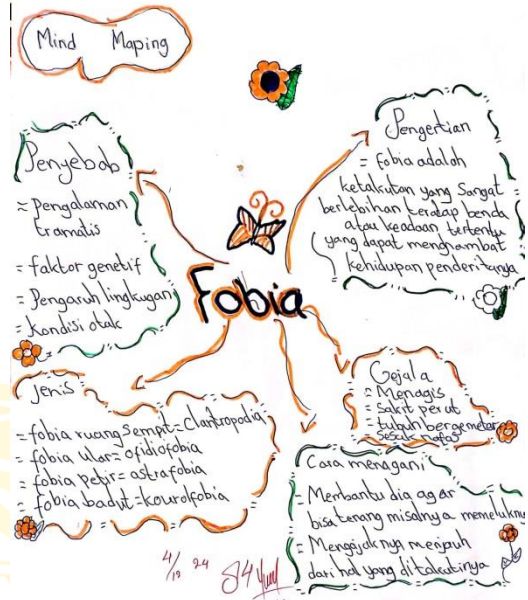 Mind Maping
Penyebab
= Pengalaman
tramatis
= faktor genetif
= Pengaruh lingkugan
= Kondisi otak
Pengertian
= fobia adalah
ketakutan yang Sangat
berlebihan teratap benda
atau keadaan tertentu
yang dapat menghambat
kehidupan penderitanya
Fobia
Jenis
= fobia ruang sempit = claritropodia
= fobia ular = ofidiofobia
= fobia petir = astrafobia
= fobia badut = kourofobia
Gejala
= Menagis
= sakit perut
= tubuh bergemetar
sesak nafas
Cara menagani
= Membantu dia agar
bisa tenang misalnya memeluknya
= Mengajaknya menjauh
dari hal yang ditakutinya
4/10 24